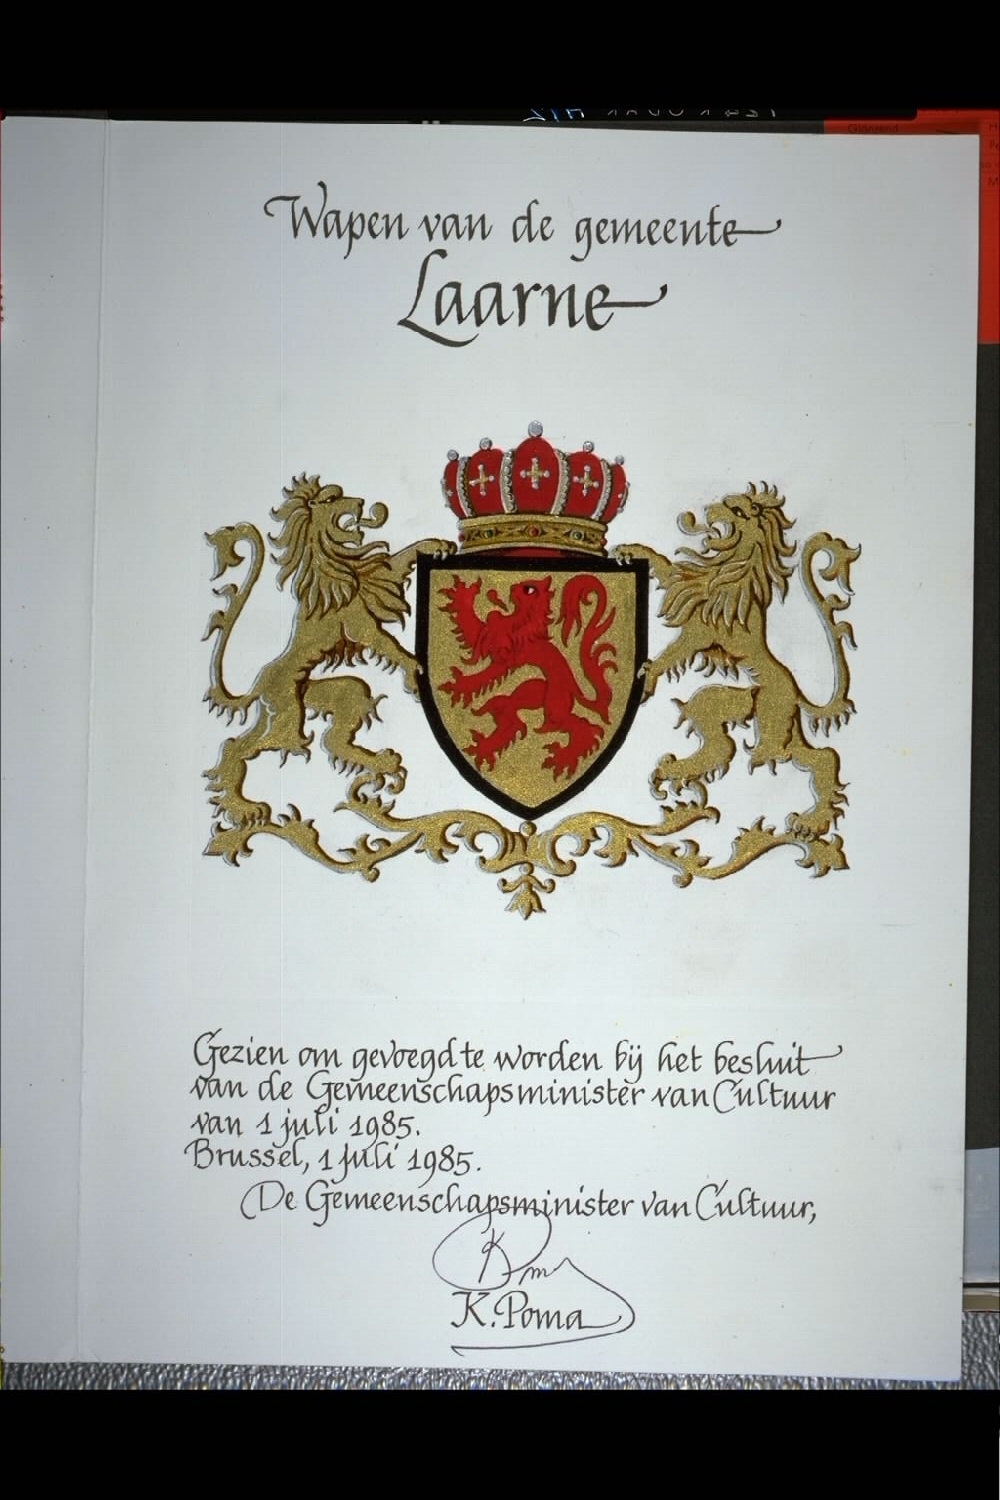 Wapen van de gemeente
Laarne
Gezien om gevoegd te worden bij het besluit
van de Gemeenschapsminister van Cultuur
van 1 juli 1985.
Brussel, 1 juli 1985.
De Gemeenschapsminister van Cultuur,
K. Poma